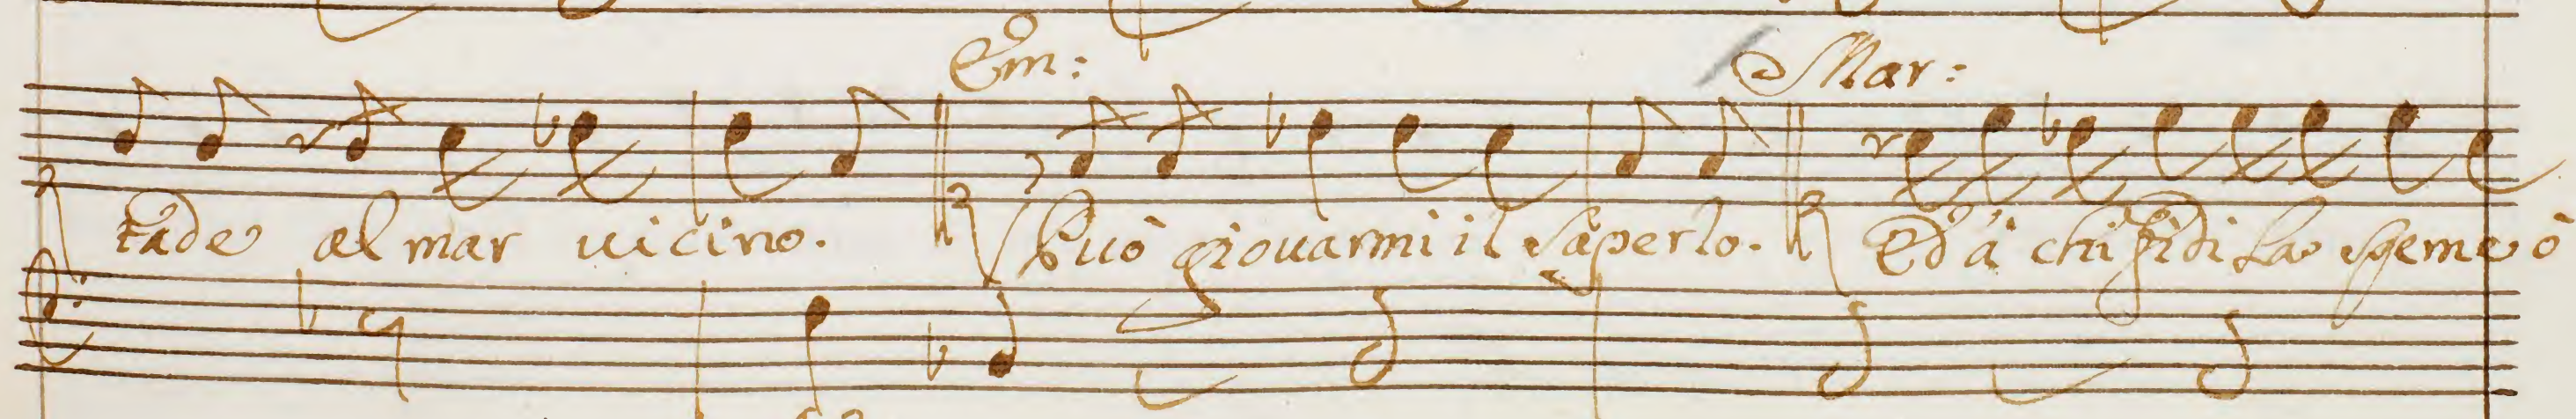 Em: Mar:
tade al mar uicino. Può giouarmi il saperlo. Ed à chi fidi la speme ò